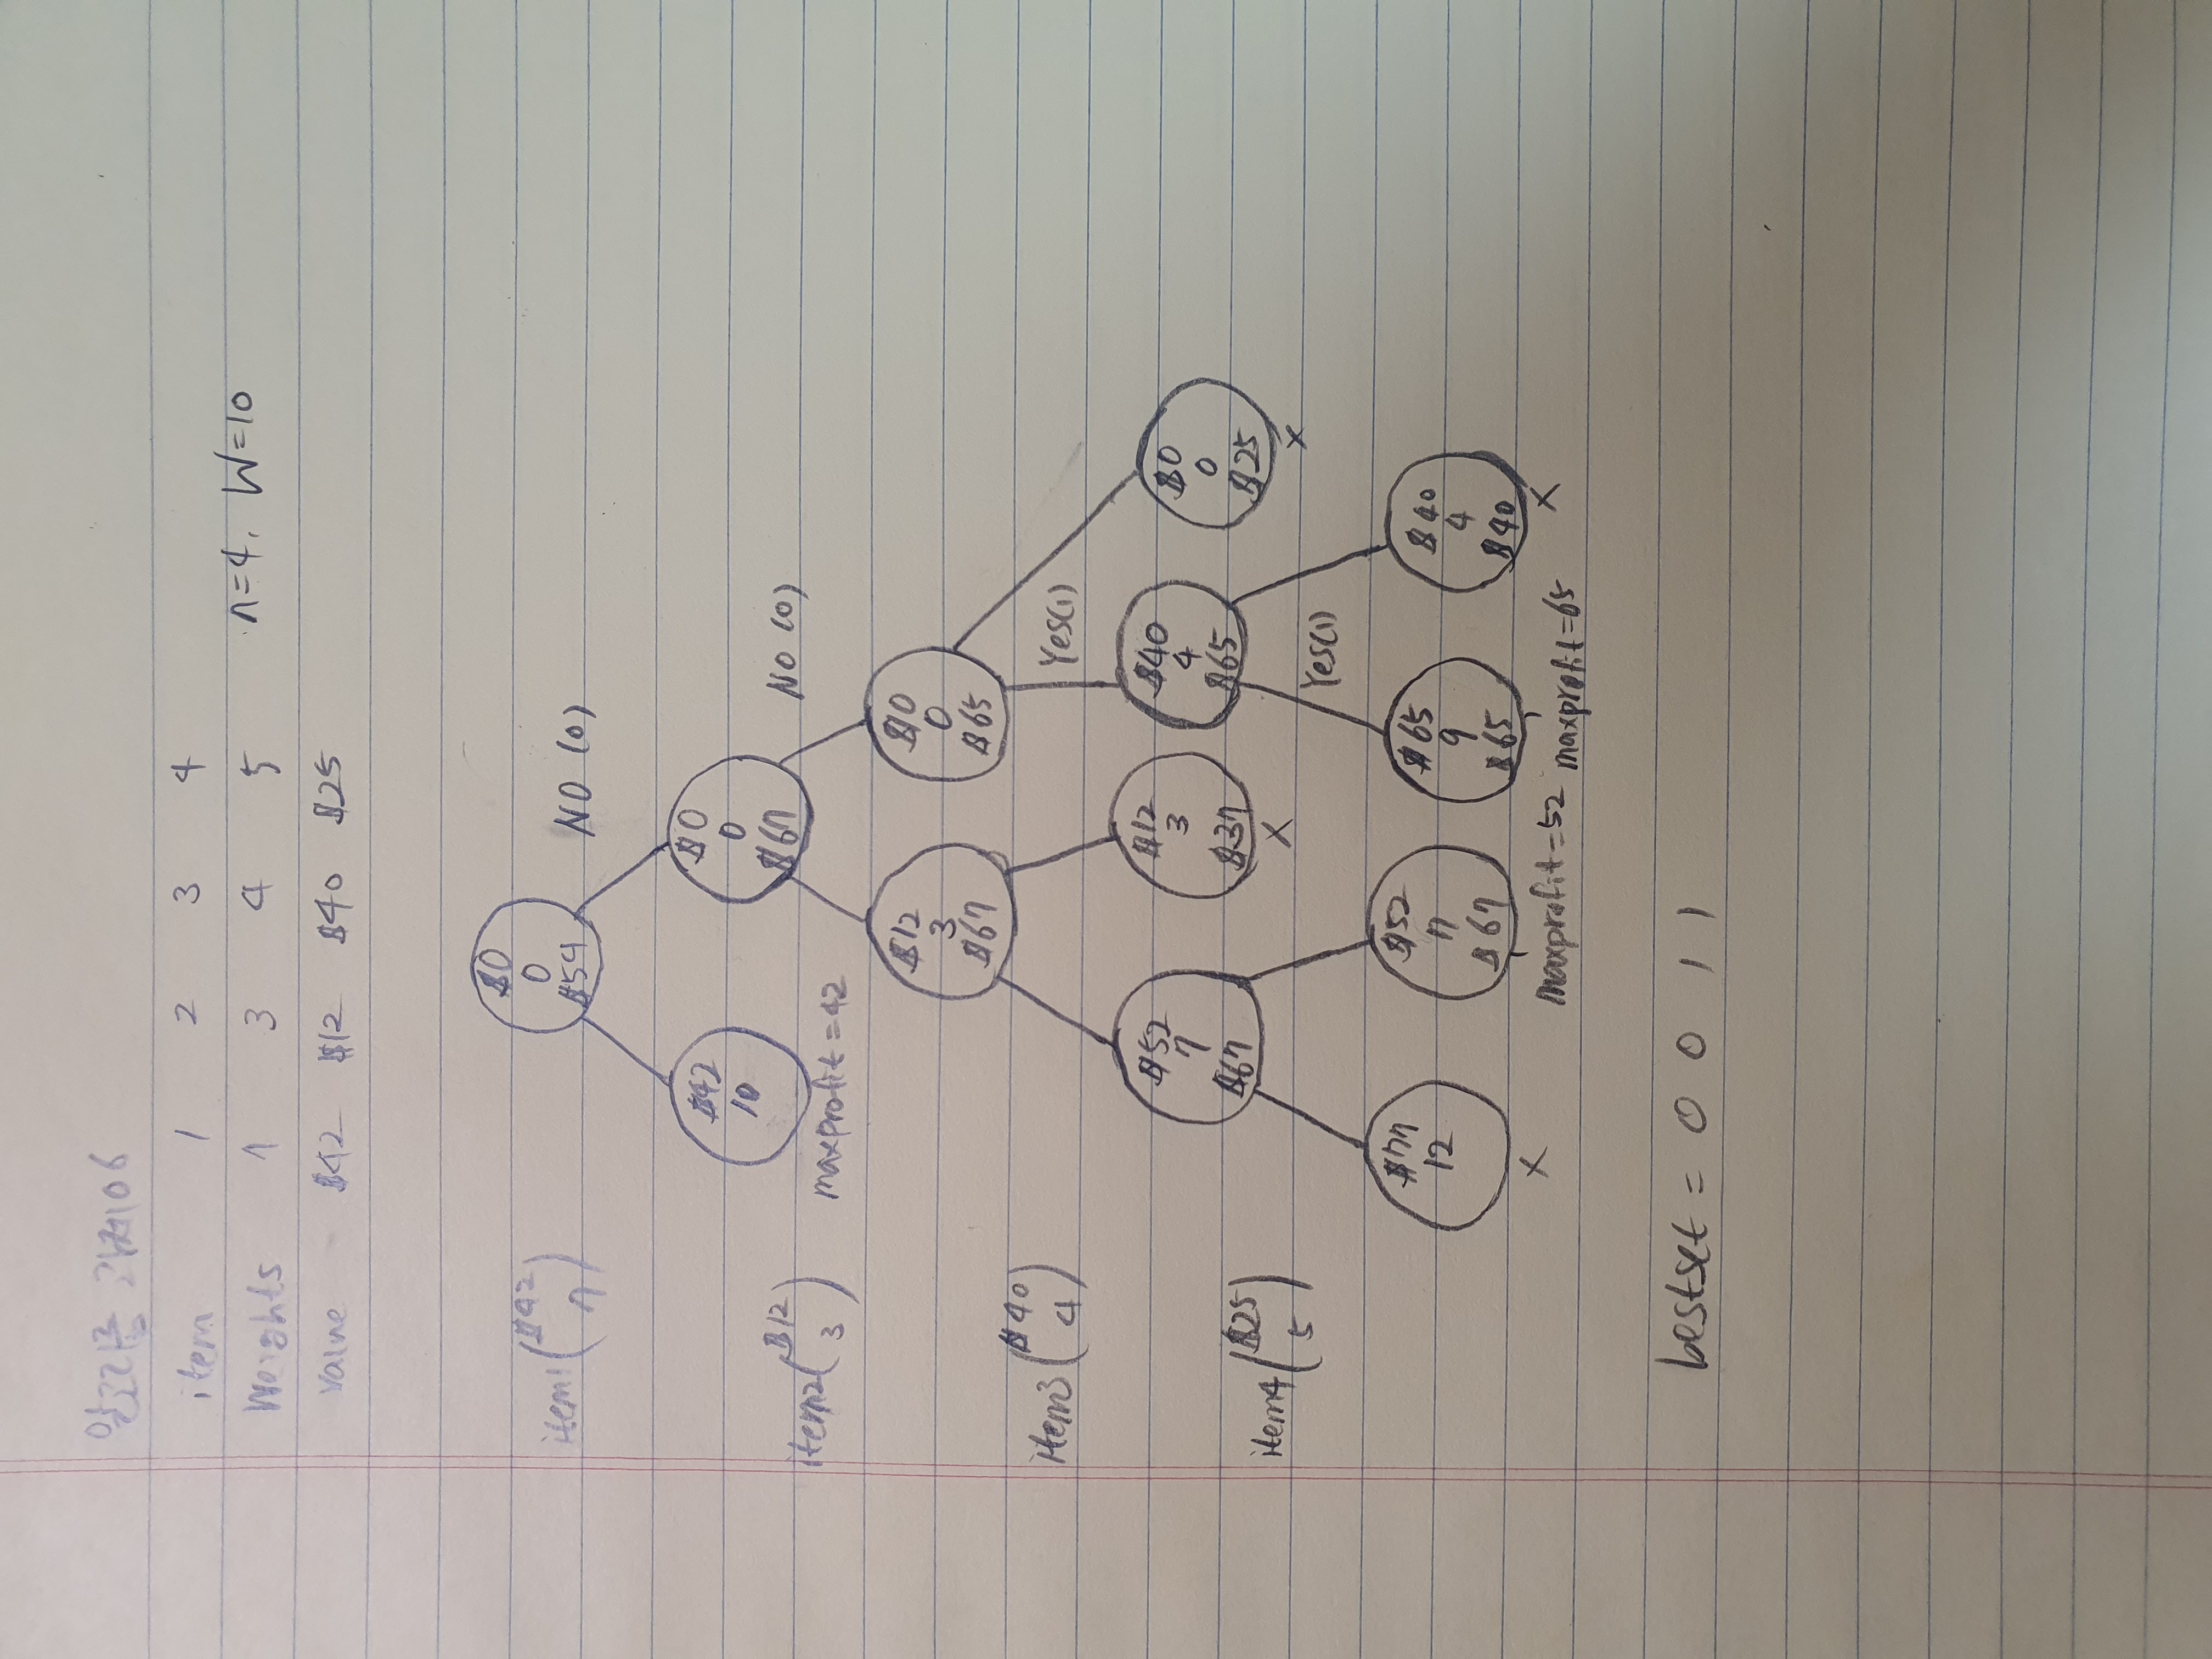 알고리즘 과제06
item 1 2 3 4
Weights 7 3 4 5
n=4, W=10
value $42 $12 $40 $25
$0
0
$54
item1 ($42
7)
NO (0)
$42
10
$0
0
$67
item2 ($12
3)
maxprofit=42
NO (0)
$12
3
$67
$0
0
$65
item3 ($40
4)
Yes(1)
$52
7
$67
$12
3
$37
X
$40
4
$65
$0
0
$25
X
item4 ($25
5)
Yes(1)
$77
12
X
$52
7
$67
maxprofit=52
$65
9
$65
maxprofit=65
$40
4
$40
X
bestset = 0 0 1 1